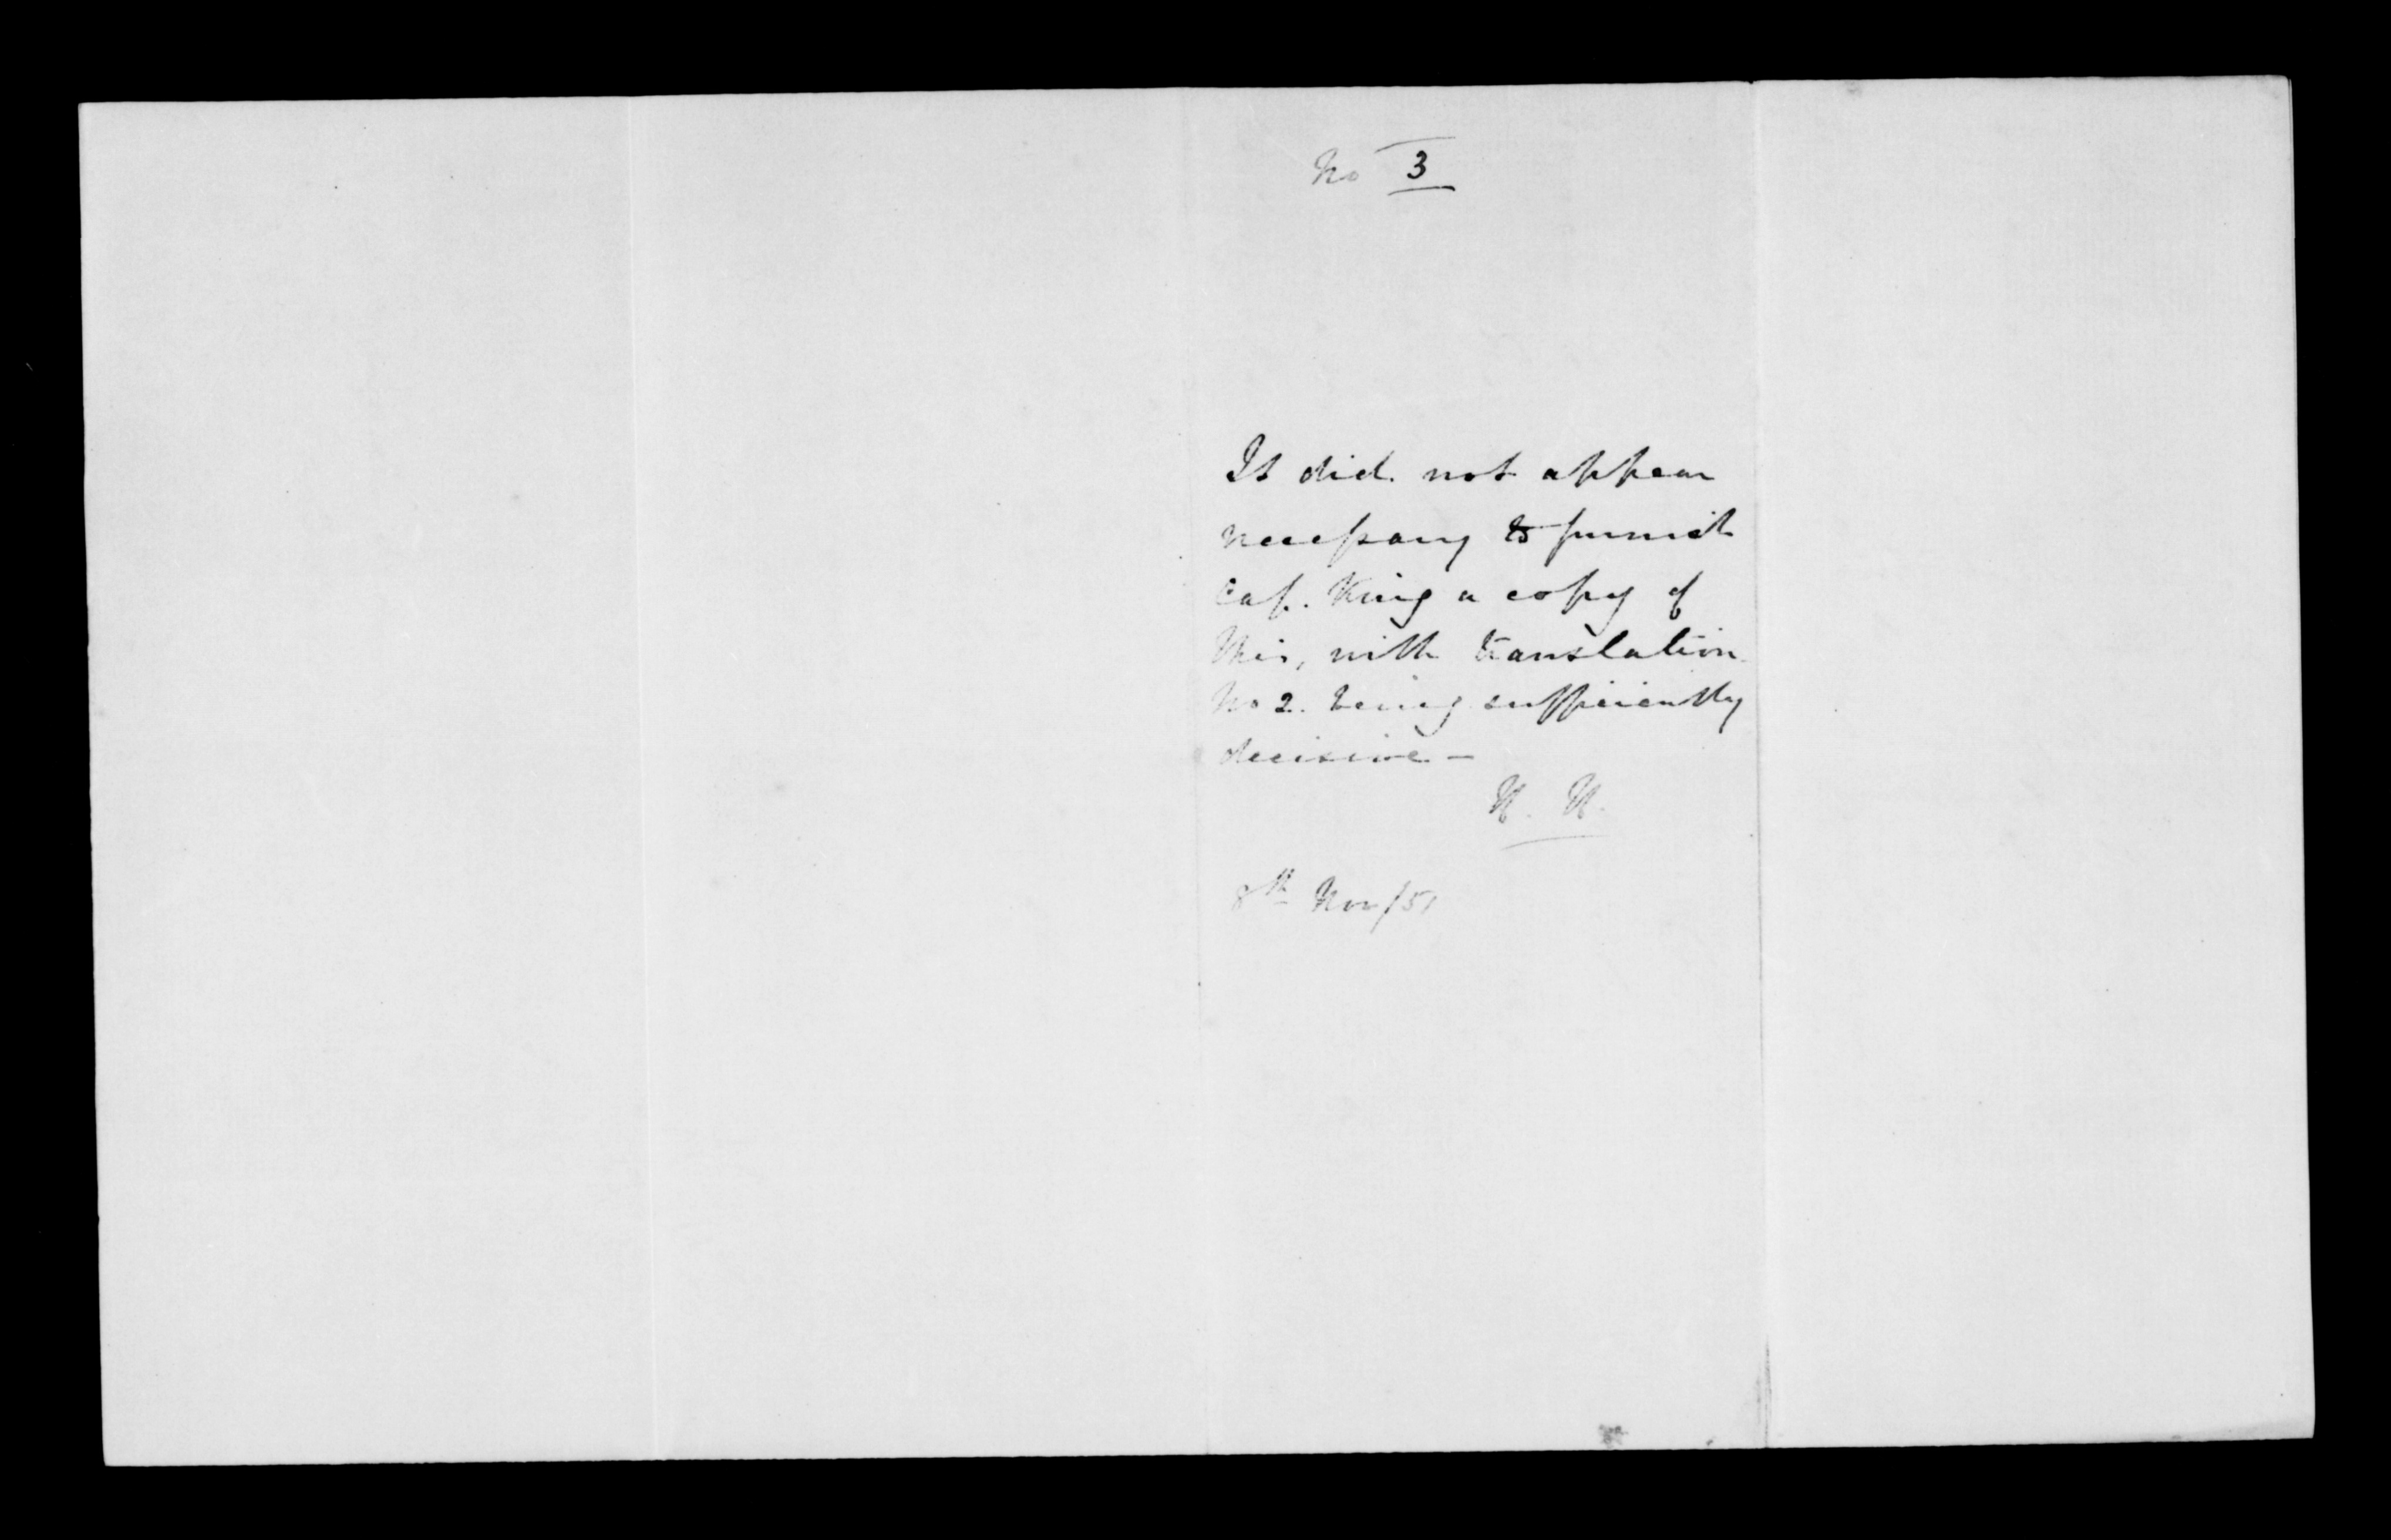 No 3
It did not appear
necessary to furnish
Cap. King a copy of
this, with translation
No 2. being sufficiently
decisive —
8th Nov/51